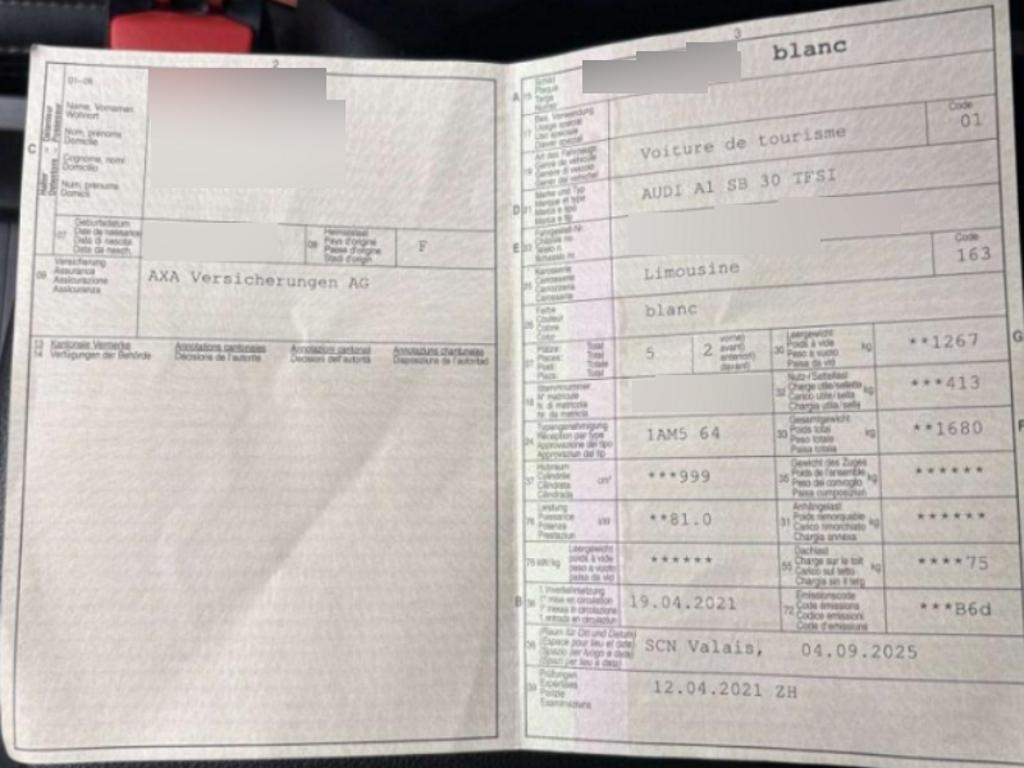 2
01-06
Name, Vornamen
Wohnort
Num, prénoms
Domicile
Cognome, nomi
Domicilio
Num, prénums
Domicil
C
07
Geburtsdatum
Date de naissance
Data di nascita
Data da nasch.
08
Heimatstaat
Pays d'origine
Paese d'origine
Stadi d'origin
F
09
Versicherung
Assurance
Assicurazione
Assicuranza
AXA Versicherungen AG
13
14
Kantonale Vermerke
Verfügungen der Behörde
Annotations cantonales
Décisions de l'autorité
Annotazioni cantonali
Decisioni dell'autorità
Annotaziuns chantunalas
Disposiziuns da l'autoritad
3
A
15
Schild
Plaque
Targa
Numer
blanc
17
Bes. Verwendung
Usage spécial
Uso speciale
Diever spezial
19
Art des Fahrzeugs
Genre de véhicule
Genere di veicolo
Gener dal vehichel
Voiture de tourisme
Code
01
D
21
Marke und Typ
Marque et type
Marca e tipo
Marca e tip
AUDI A1 SB 30 TFSI
E
23
Fahrgestell-Nr.
Châssis no
Telaio n.
Schassis nr.
25
Karosserie
Carrosserie
Carrozzeria
Carossaria
Limousine
Code
163
26
Farbe
Couleur
Colore
Color
blanc
27
Plätze: Total
Places: Total
Posti: Totale
Plazs: Total
5
2
vorne)
avant)
anteriori)
davant)
30
Leergewicht
Poids à vide
Peso a vuoto
Paisa da vid
kg
**1267
G
18
Stammnummer
N° matricule
N. di matricola
Nr. da matricla
32
Nutz-/Sattellast
Charge utile/sellette
Carico utile/sella
Chargia utila/sella
kg
***413
24
Typengenehmigung
Réception par type
Approvazione del tipo
Approvaziun dal tip
1AM5 64
33
Gesamtgewicht
Poids total
Peso totale
Paisa totala
kg
**1680
F
37
Hubraum
Cylindrée
Cilindrata
Cilindrada
cm³
***999
35
Gewicht des Zuges
Poids de l'ensemble
Peso del convoglio
Paisa cumposiziun
kg
******
76
Leistung
Puissance
Potenza
Prestaziun
kW
**81.0
31
Anhängelast
Poids remorquable
Carico rimorchiato
Chargia annexa
kg
******
78
kW/kg
Leergewicht
poids à vide
peso a vuoto
paisa da vid
******
55
Dachlast
Charge sur le toit
Carico sul tetto
Chargia sin il tetg
kg
****75
B
36
1. Inverkehrsetzung
1re mise en circulation
1a messa in circolazione
1. entrada en circulaziun
19.04.2021
72
Emissionscode
Code émissions
Codice emissioni
Code d'emissiuns
***B6d
38
(Raum für Ort und Datum)
(Espace pour lieu et date)
(Spazio per luogo e data)
(Spazi per lieu e data)
SCN Valais, 04.09.2025
39
Prüfungen
Expertises
Perizie
Examinaziuns
12.04.2021 ZH